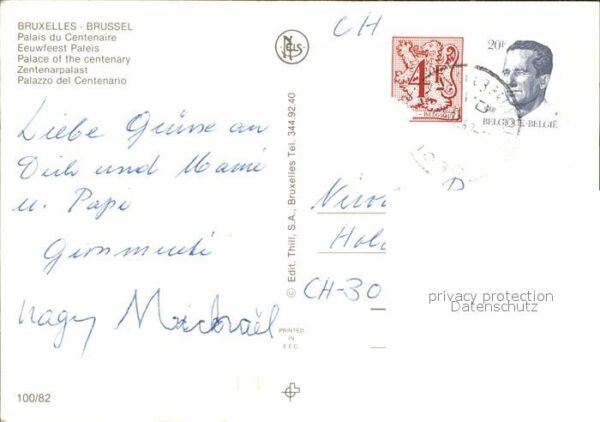 BRUXELLES - BRUSSEL
Palais du Centenaire
Eeuwfeest Paleis
Palace of the centenary
Zentenarpalast
Palazzo del Centenario
NELS
Liebe Grüsse an
Dich und Mami
u. Papi
Michaël
100/82
© Edit. Thill, S.A., Bruxelles Tel. 344.92.40
PRINTED
IN
E.E.C.
CH
4F
20F
BELGIQUE-BELGIË
CH-30
privacy protection
Datenschutz